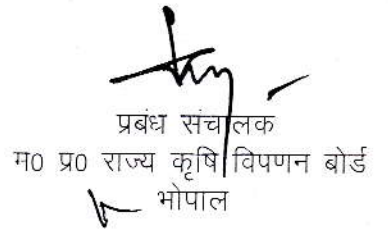 प्रबंध संचालक
म0 प्र0 राज्य कृषि विपणन बोर्ड
भोपाल